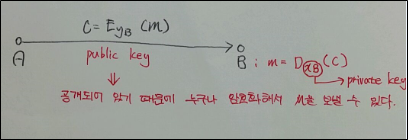 C = E_yB (m)
A public key B ; m = D_xB (C)
private key
공개되어 있기 때문에 누구나 암호화해서 M을 보낼 수 있다.